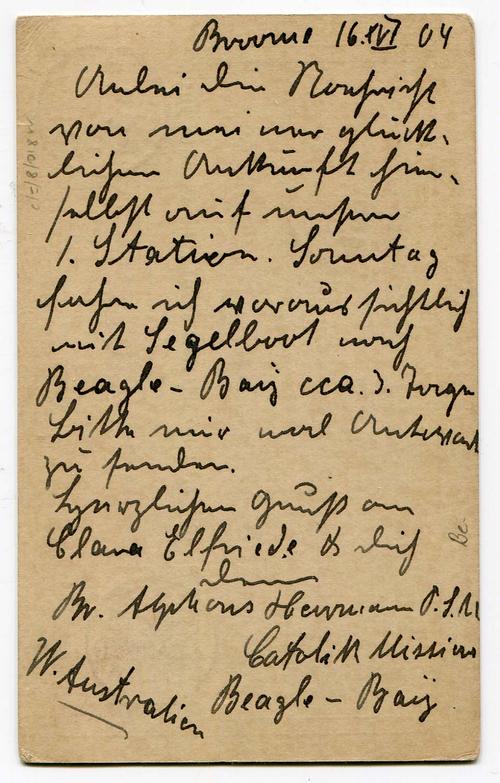 Broome 16.VI 04
Anbei die Nachricht
von meiner glück-
lichen Ankunft hier-
selbst auf unserer
1. Station. Sonntag
fahren ich voraussichtlich
mit Segelboot nach
Beagle-Baij cca. 3. Tage
Bitte mir mal Antwort
zu senden.
Herzlichen Gruß an
Clara Elfriede & dich
dein
Br. Alphons Herrmann P.S.M
Catolik Mission
W. Australien
Beagle-Baij
c/z/8/018
Bc.